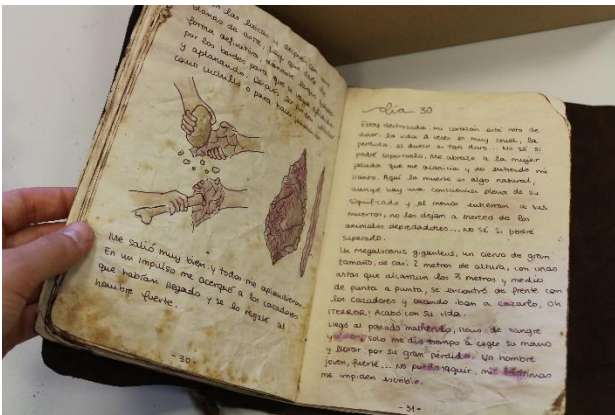 con las lascas se despren
forma definitiva, dándole
por los bordes para que se vaya afilando
y aplanando. Después se puede
como cuchillo o para hacer
Me salió muy bien y todos me aplaudieron.
En un impulso me acerqué a los cazadores
que habían llegado y se lo regalé al
hombre fuerte.
-30-
día 30
Estoy destrozada, mi corazón está roto de
dolor. La vida a veces es muy cruel, la
pérdida, el duelo es tan duro... No sé si
podré soportarlo. Me abrazo a la mujer
peluda que me acaricia y no entiende mi
llanto. Aquí la muerte es algo natural,
aunque hay una conciencia plena de su
significado y al menos entierran a sus
muertos, no los dejan a merced de los
animales depredadores... No sé si podré
superarlo.
Un Megaloceros giganteus, un ciervo de gran
tamaño, de casi 2 metros de altura, con unas
astas que alcanzan los 3 metros y medio
de punta a punta, se encontró de frente con
los cazadores y cuando iban a cazarlo, Oh
¡TERROR! Acabó con su vida.
Llegó al poblado malherido, lleno de sangre
y solo me dio tiempo a coger su mano
y llorar por su gran pérdida. Un hombre
joven, fuerte... No puedo seguir, mis lágrimas
me impiden escribir.
-31-